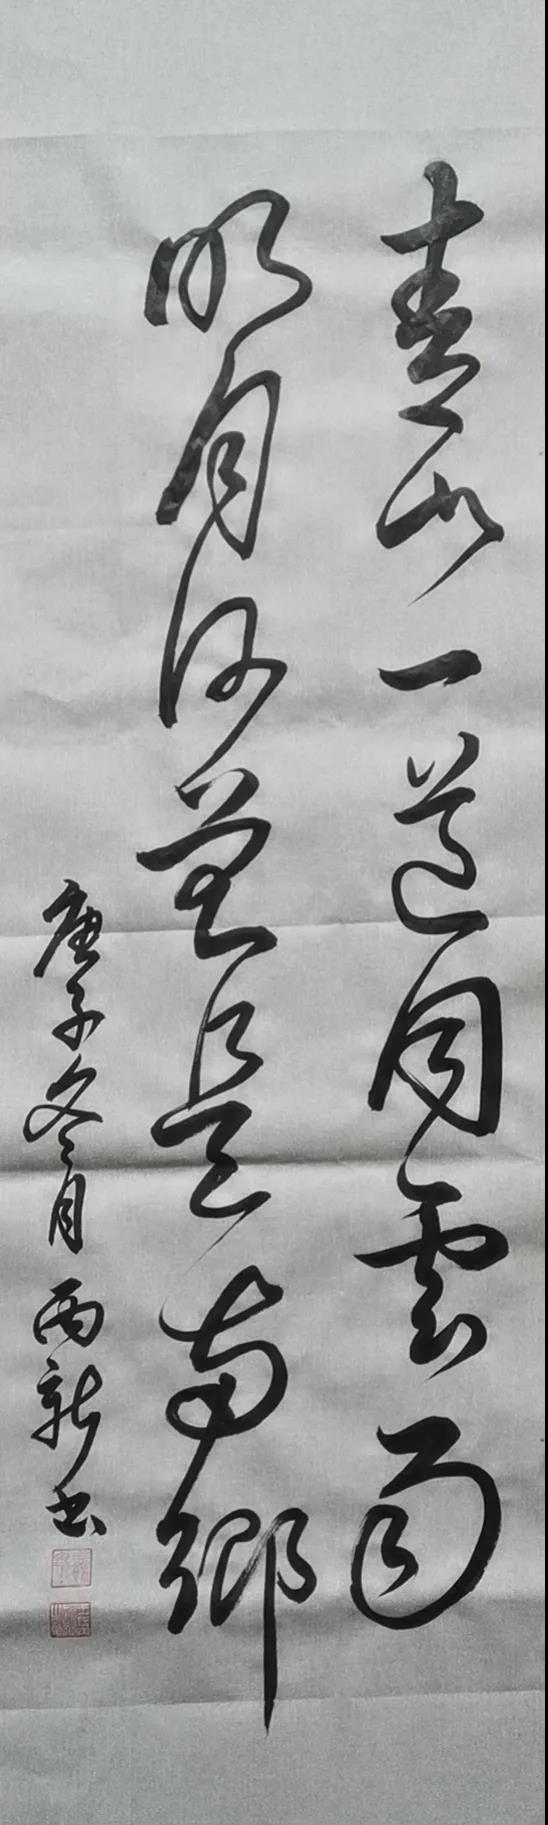 青山一道同雲雨
明月何曾是兩鄉
庚子冬月 丙新书